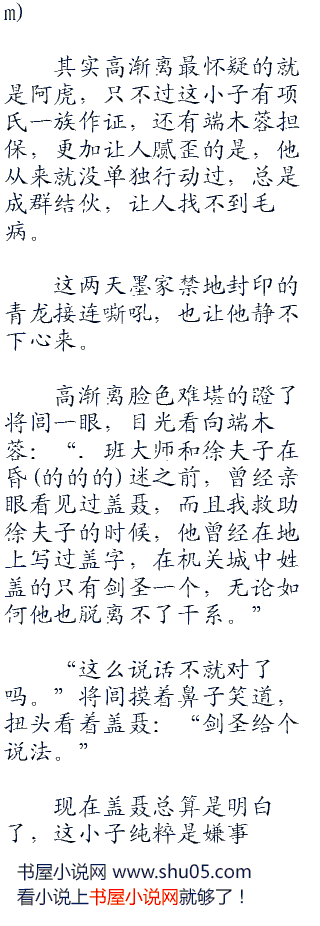 m)
其实高渐离最怀疑的就
是阿虎，只不过这小子有项
氏一族作证，还有端木蓉担
保，更加让人腻歪的是，他
从来就没单独行动过，总是
成群结伙，让人找不到毛
病。
这两天墨家禁地封印的
青龙接连嘶吼，也让他静不
下心来。
高渐离脸色难堪的瞪了
将闾一眼，目光看向端木
蓉：“．班大师和徐夫子在
昏(的的的)迷之前，曾经亲
眼看见过盖聂，而且我救助
徐夫子的时候，他曾经在地
上写过盖字，在机关城中姓
盖的只有剑圣一个，无论如
何他也脱离不了干系。”
“这么说话不就对了
吗。”将闾摸着鼻子笑道，
扭头看着盖聂：“剑圣给个
说法。”
现在盖聂总算是明白
了，这小子纯粹是嫌事
书屋小说网 www.shu05.com
看小说上书屋小说网就够了！